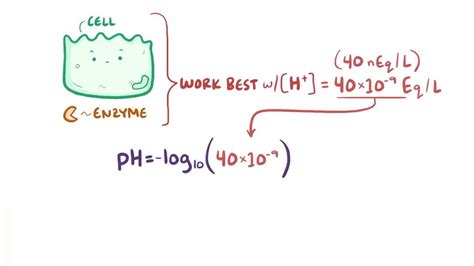 CELL
(40 nEq/L)
WORK BEST w/[H⁺] = 40×10⁻⁹ Eq/L
~ENZYME
pH=-log₁₀(40×10⁻⁹)